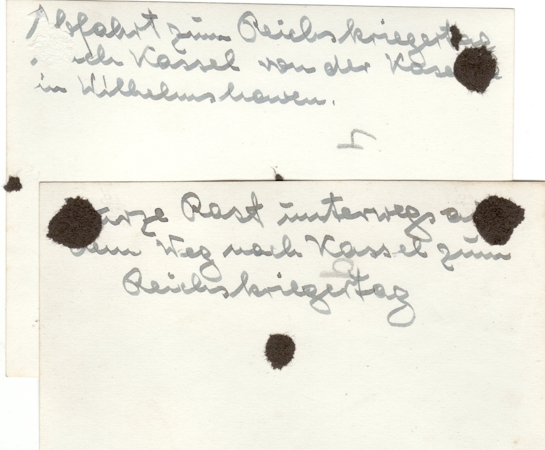 Abfahrt zum Reichskriegertag
nach Kassel von der Kaserne
in Wilhelmshaven.
Kurze Rast unterwegs auf
dem Weg nach Kassel zum
Reichskriegertag